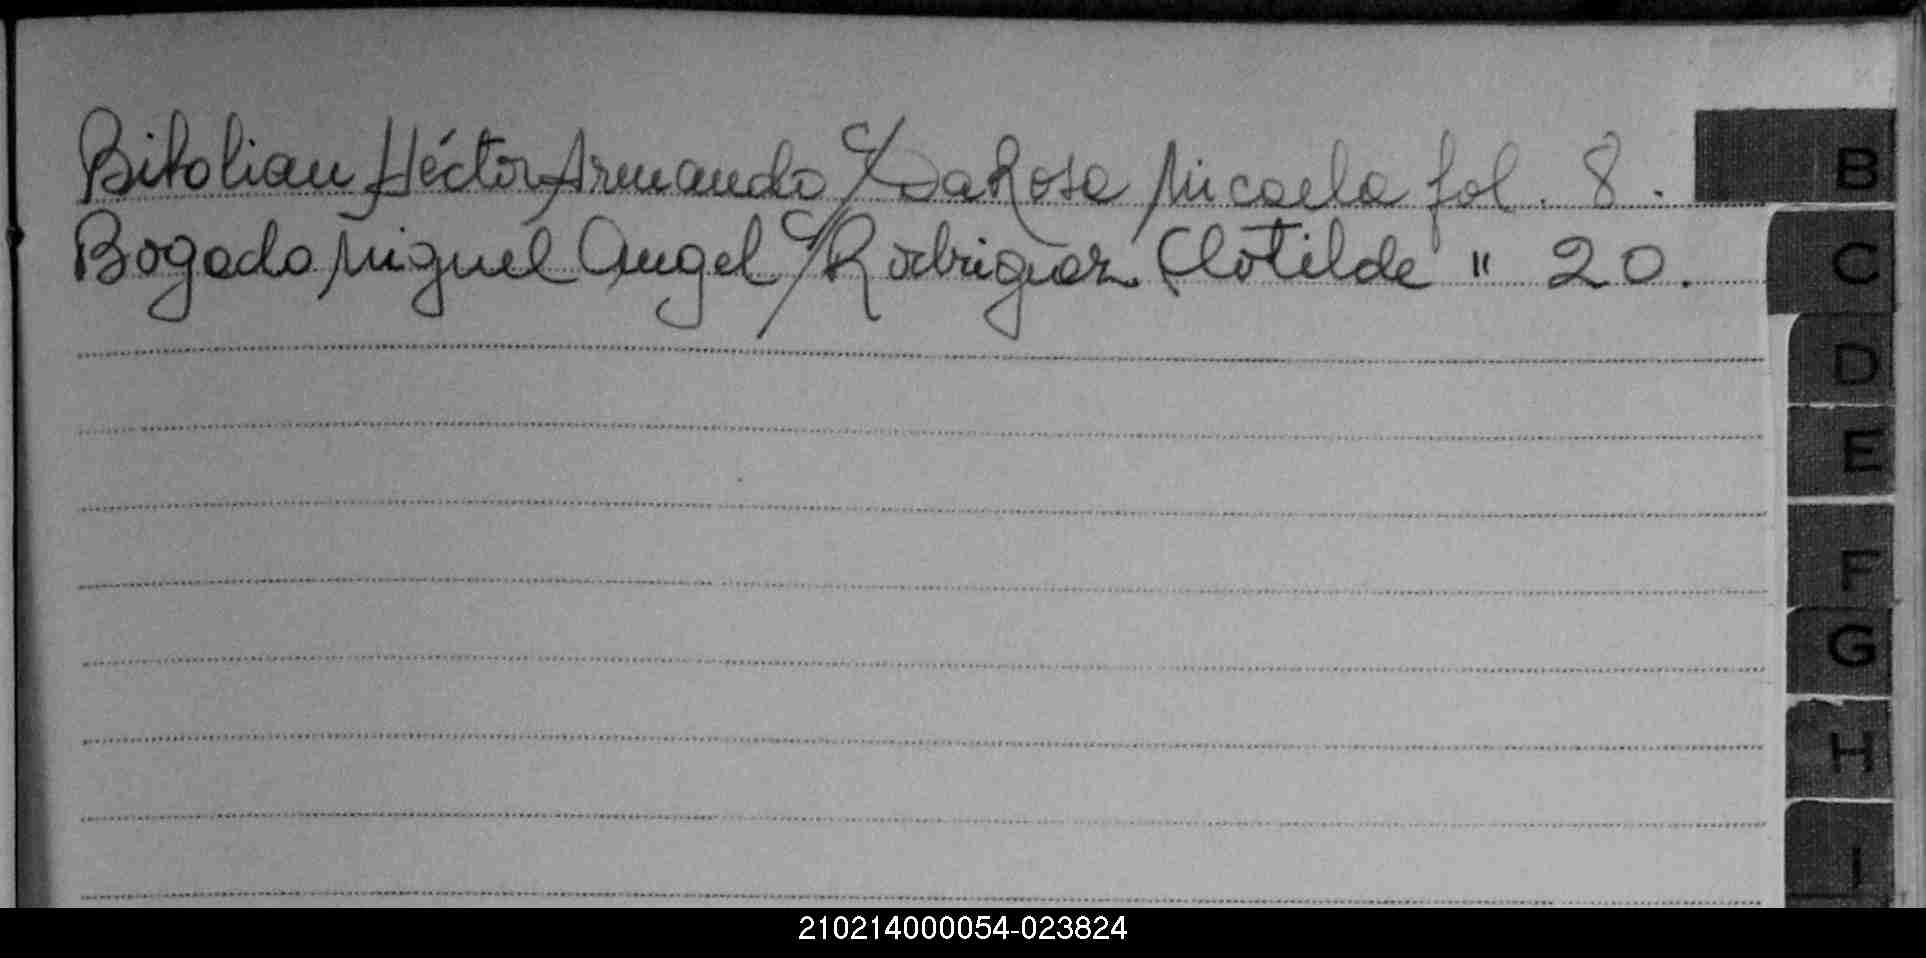 Bitolian Héctor Armando c/ Da Rosa Micaela fol. 8.
Bogado Miguel Angel c/ Rodriguez Clotilde " 20.
B
C
D
E
F
G
H
I
210214000054-023824